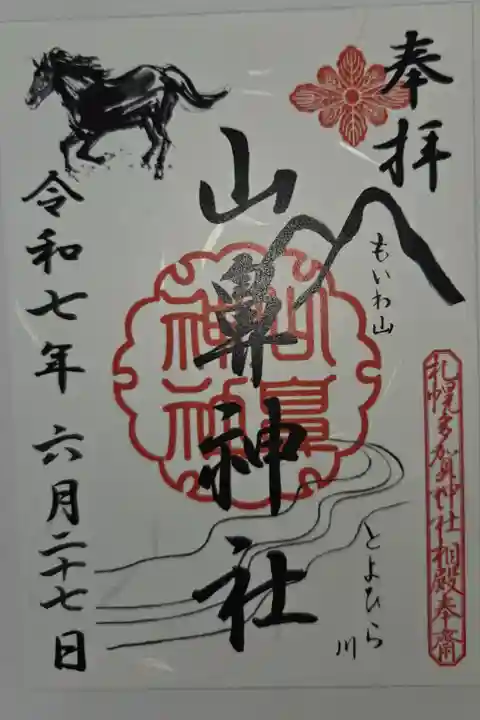 奉拝
もいわ山
札幌多賀神社相殿奉斎
山鼻神社
とよひら川
令和七年 六月二十七日